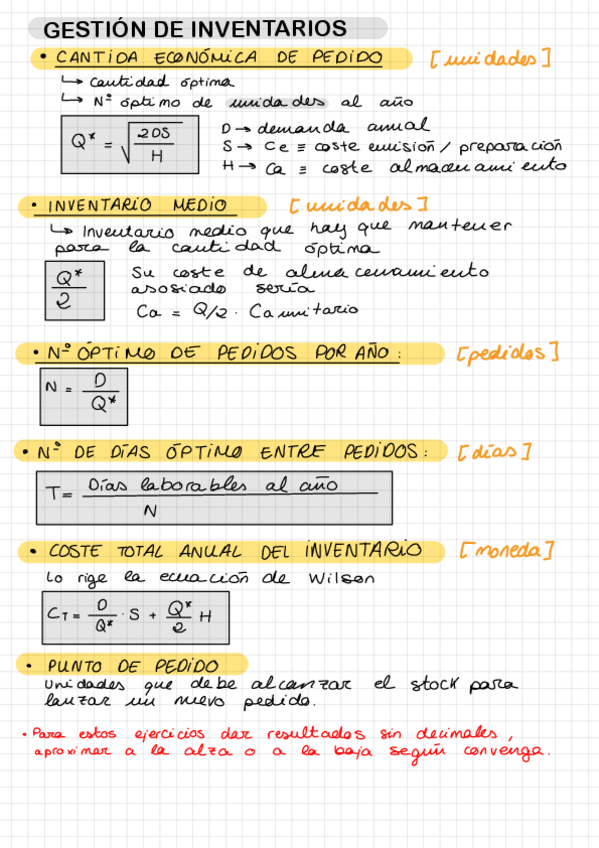 GESTIÓN DE INVENTARIOS
• CANTIDA ECONÓMICA DE PEDIDO [unidades]
↳ Cantidad óptima
↳ Nº óptimo de unidades al año
Q* = √(2DS / H)
D → demanda anual
S → Ce ≡ coste emisión / preparación
H → Ca ≡ coste almacenamiento
• INVENTARIO MEDIO [unidades]
↳ Inventario medio que hay que mantener
para la cantidad óptima
Q* / 2
Su coste de almacenamiento
asosiado sería
Ca = Q/2 · Ca unitario
• Nº ÓPTIMO DE PEDIDOS POR AÑO: [pedidos]
N = D / Q*
• Nº DE DÍAS ÓPTIMO ENTRE PEDIDOS: [días]
T = Días laborables al año / N
• COSTE TOTAL ANUAL DEL INVENTARIO [moneda]
Lo rige la ecuación de Wilson
CT = D / Q* · S + Q* / 2 H
• PUNTO DE PEDIDO
Unidades que debe alcanzar el stock para
lanzar un nuevo pedido.
• Para estos ejercicios dar resultados sin decimales,
aproximar a la alza o a la baja según convenga.